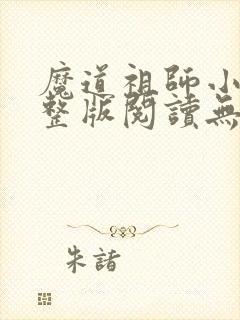 魔道祖師小
整版閱讀無
朱諸